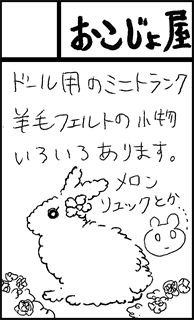 おこじょ屋
ドール用のミニトランク
羊毛フェルトの小物
いろいろあります。
メロン
リュックとか